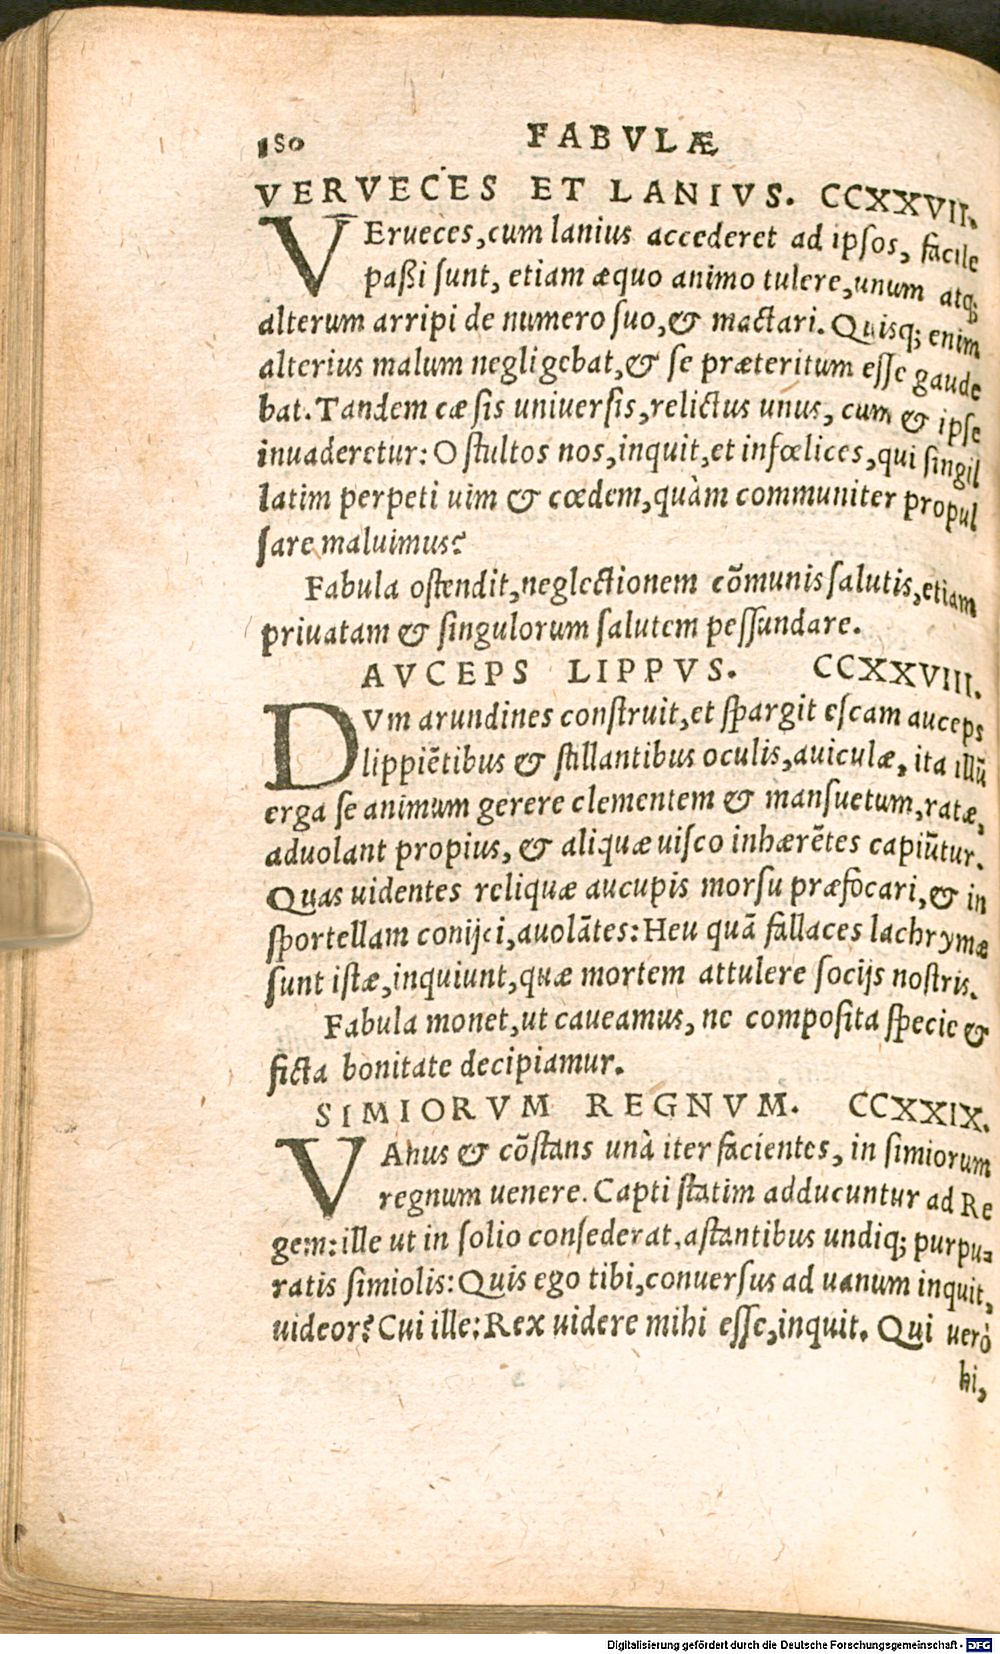 180 FABVLÆ
VERVECES ET LANIVS. CCXXVII.
VErueces, cum lanius accederet ad ipſos, facile
paßi ſunt, etiam æquo animo tulere, unum atq;
alterum arripi de numero ſuo, & mactari. Quisq; enim
alterius malum negligebat, & ſe præteritum eſſe gaude
bat. Tandem cæſis univerſis, relictus unus, cum & ipſe
inuaderetur: O ſtultos nos, inquit, et infœlices, qui ſingil
latim perpeti uim & cœdem, quàm communiter propul
ſare maluimus?
Fabula oſtendit, neglectionem cõmunis ſalutis, etiam
priuatam & ſingulorum ſalutem peſſundare.
AVCEPS LIPPVS. CCXXVIII.
DVm arundines conſtruit, et ſpargit eſcam auceps
lippiẽtibus & ſtillantibus oculis, aviculæ, ita illũ
erga ſe animum gerere clementem & manſuetum, ratæ,
aduolant propius, & aliquæ uiſco inhærẽtes capiũtur.
Quas uidentes reliquæ aucupis morſu præfocari, & in
ſportellam conijci, avolãtes: Heu quã fallaces lachrymæ
ſunt iſtæ, inquiunt, quæ mortem attulere ſocijs noſtris.
Fabula monet, ut caueamus, ne compoſita ſpecie &
ficta bonitate decipiamur.
SIMIORVM REGNVM. CCXXIX.
VAnus & cõſtans unà iter facientes, in ſimiorum
regnum uenere. Capti ſtatim adducuntur ad Re
gem: ille ut in ſolio conſederat, aſtantibus undiq; purpu-
ratis ſimiolis: Quis ego tibi, conuerſus ad uanum inquit,
uideor? Cui ille: Rex uidere mihi eſſe, inquit. Qui uerò
hi,
Digitalisierung gefördert durch die Deutsche Forschungsgemeinschaft - DFG